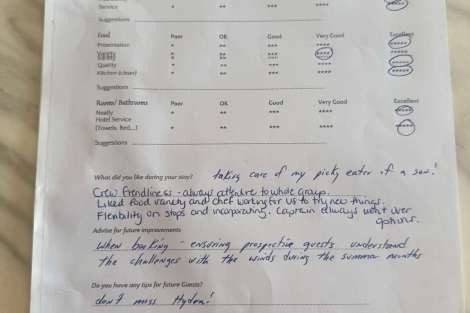 Service * ** *** **** *****
Suggestions
Food Poor OK Good Very Good Excellent
Presentation * ** *** **** *****
* ** *** **** *****
Quality * ** *** **** *****
Kitchen (clean) * ** *** **** *****
Suggestions
Rooms/ Bathrooms Poor OK Good Very Good Excellent
Neatly * ** *** **** *****
Hotel Service
(Towels, Bed,...) * ** *** **** *****
Suggestions
What did you like during your stay? taking care of my picky eater of a son!
Crew frendliness - always attentive to whole group.
Liked food variety and chef working for us to try new things.
Flexibility on stops and incorporating. Captain always went over
options.
Advise for future improvements
When booking - ensuring prospective guests understand
the challenges with the winds during the summer months
Do you have any tips for future Guests?
don't miss Hydra!